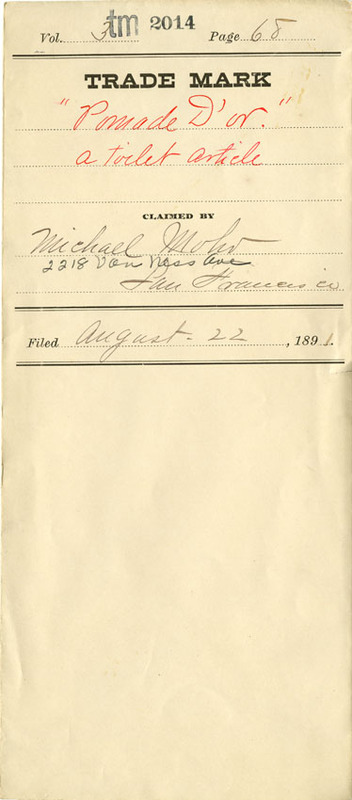 Vol. 3 tm 2014 Page 68
TRADE MARK
"Pomade D'or."
a toilet article
CLAIMED BY
Michael
2218 Van Ness Ave
San Francisco
Filed August - 22, 1891.